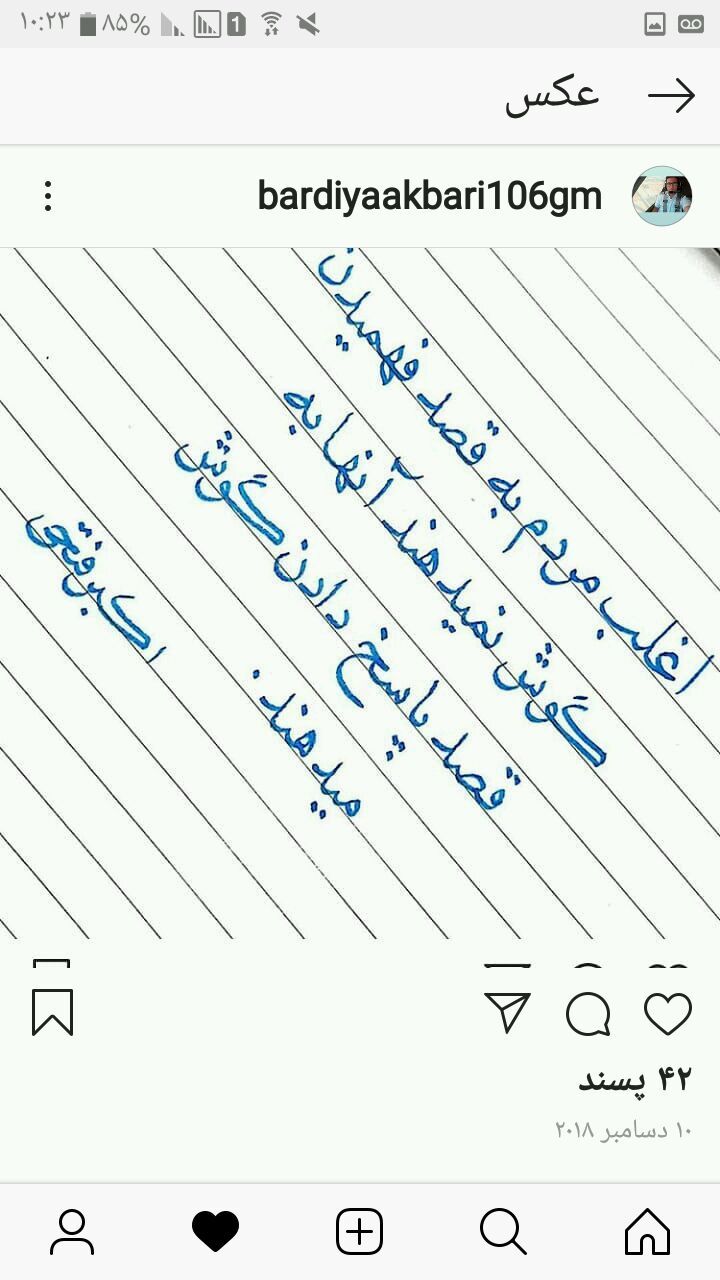 ۱۰:۲۳ ۸۵% 1
عکس
bardiyaakbari106gm
اغلب مردم به قصد فهمیدن
گوش نمیدهند آنها به
قصد پاسخ دادن گوش
میدهند.
اکبر فتحی
۴۲ پسند
۱۰ دسامبر ۲۰۱۸